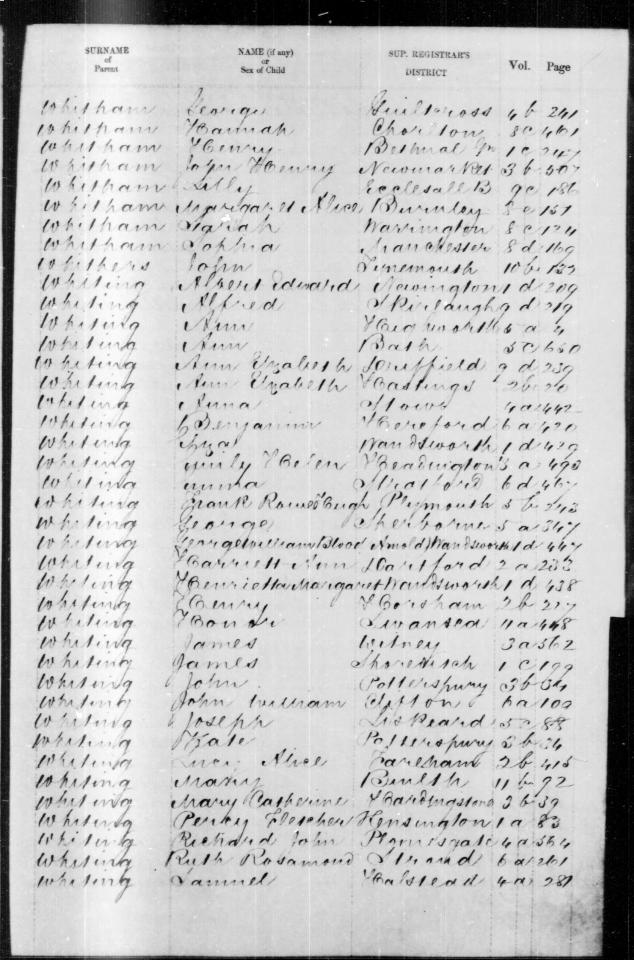 SURNAME of Parent NAME (if any) or Sex of Child SUP. REGISTRAR'S DISTRICT Vol. Page
Whitham George Guiltcross 4b 241
Whitham Hannah Chorlton 8c 461
Whitham Henry Bethnal Gn 1c 247
Whitham John Henry Newmarket 3b 507
Whitham Lilly Ecclesall B 9c 186
Whitham Margaret Alice Burnley 8e 151
Whitham Sarah Warrington 8c 124
Whitham Sophia Manchester 8d 169
Whithers John Tynemouth 10b 133
Whiting Albert Edward Newington 1d 209
Whiting Alfred Skirlaugh 9d 219
Whiting Ann Highworth 5a 4
Whiting Ann Bath 5c 650
Whiting Ann Elizabeth Driffield 9d 239
Whiting Ann Elizabeth Hastings 2b 20
Whiting Anna Stow 4a 442
Whiting Benjamin Hereford 6a 420
Whiting Wandsworth 1d 429
Whiting Emily Helen Headington 3a 493
Whiting Emma Stratford 6d 467
Whiting Frank Rowe Plymouth 5b 243
Whiting George Sherborne 5a 347
Whiting George William (Blood Arnold) Wandsworth 1d 447
Whiting Harriett Ann Hartford 2a 233
Whiting Henrietta Margaret Wandsworth 1d 438
Whiting Henry Horsham 2b 277
Whiting Honor Swansea 11a 448
Whiting James Witney 3a 562
Whiting James Shoreditch 1c 199
Whiting John Potterspury 3b 34
Whiting John William Clifton 6a 100
Whiting Joseph Liskeard 5c 88
Whiting Kate Potterspury 3b 34
Whiting Lucy Alice Fareham 2b 415
Whiting Mary Builth 11b 92
Whiting Mary Catherine Hardingstone 3b 39
Whiting Percy Fletcher Kensington 1a 83
Whiting Richard John Plomesgate 4a 564
Whiting Ruth Rosamond Stroud 6a 261
Whiting Samuel Halstead 4a 281